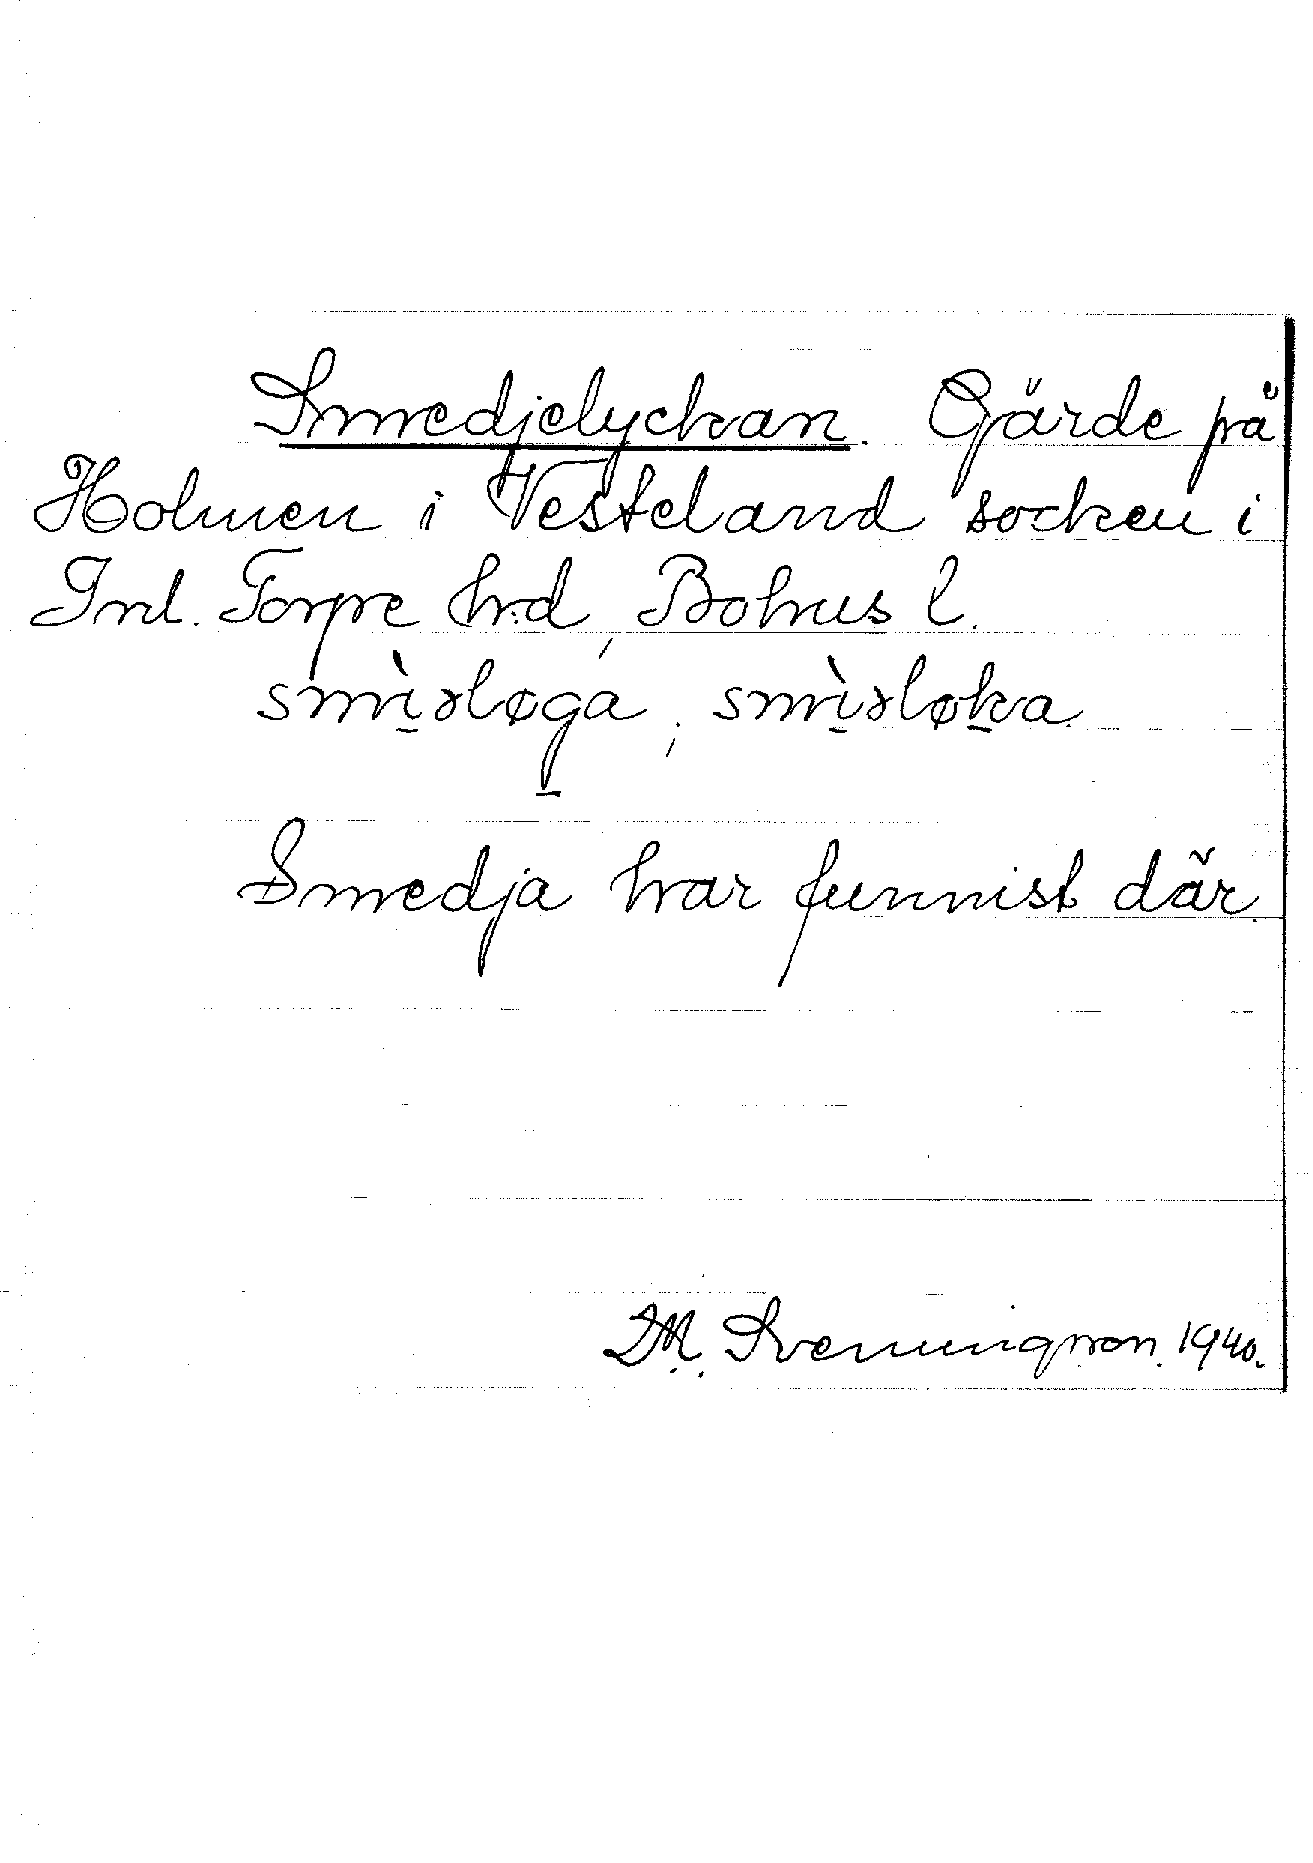 Smedjelyckan. Gärde på
Holmen i Vesteland socken i
Inl. Torpe hd, Bohus l.
smìəløga, smìəløka
Smedja har funnist där.
M. Svenungsson. 1940.